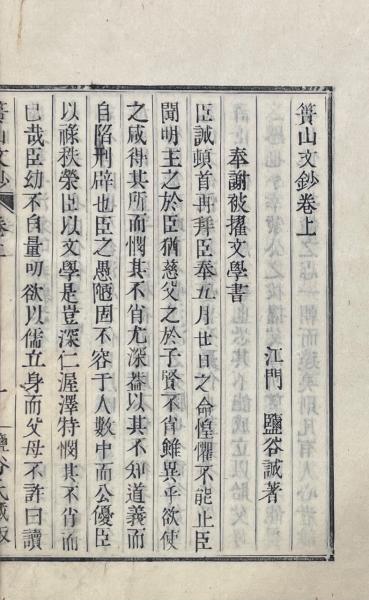 簣山文鈔卷上
江門 鹽谷誠著
奉謝被擢文學書
臣誠頓首再拜臣奉五月廿日之命惶懼不能止臣
聞明主之於臣猶慈父之於子賢不肖雖異乎欲使
之咸得其所而憫其不肖尤深葢以其不知道義而
自陷刑辟也臣之愚陋固不容于人數中而公優臣
以祿秩榮臣以文學是豈深仁渥澤特憫其不肖而
已哉臣幼不自量叨欲以儒立身而父母不許曰讀
簣山文鈔 卷上 一 鹽谷氏藏版